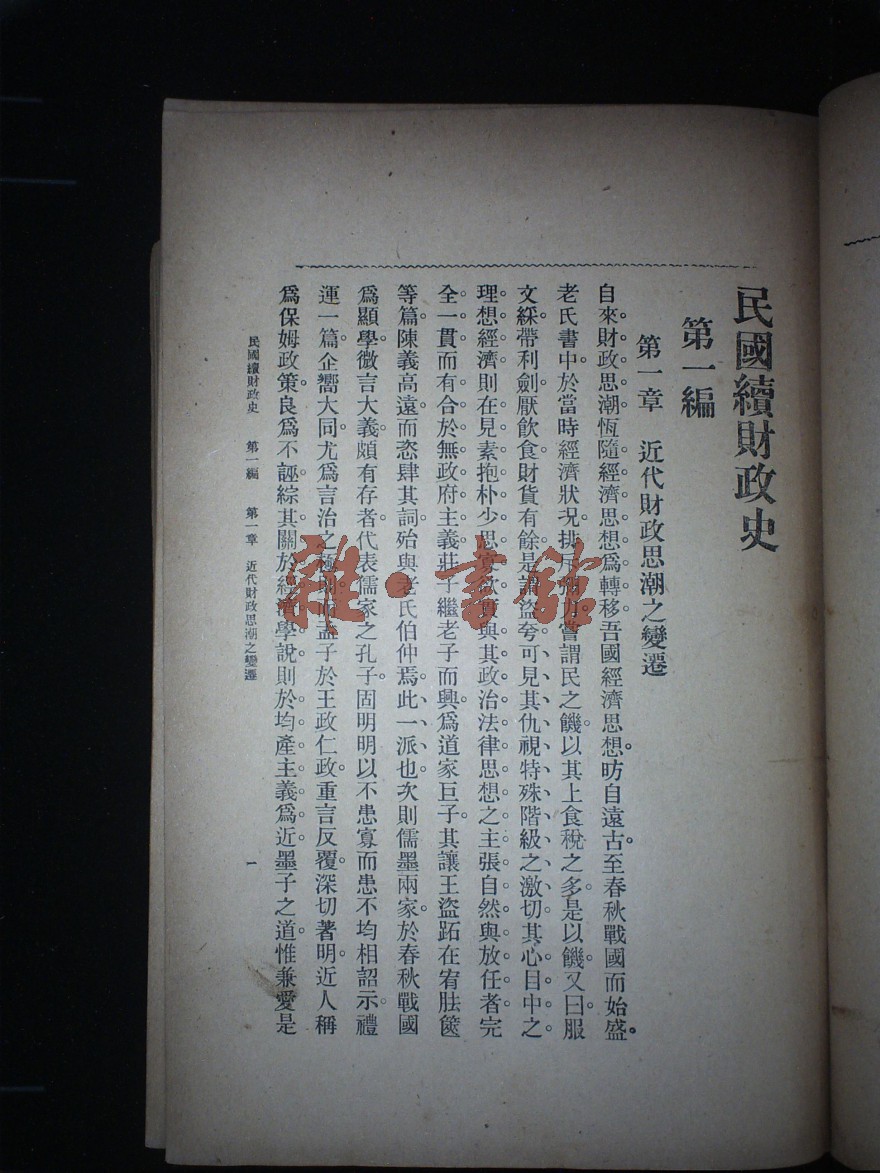 民國續財政史
第一編
第一章 近代財政思潮之變遷
自來財政思潮恆隨經濟思想爲轉移吾國經濟思想昉自遠古至春秋戰國而始盛
老氏書中於當時經濟狀況排斥嘗謂民之饑以其上食稅之多是以饑又曰服
文綵帶利劍厭飲食財貨有餘是謂盜夸可見其仇視特殊階級之激切其心目中之
理想經濟則在見素抱朴少思寡欲與其政治法律思想之主張自然與放任者完
全一貫而有合於無政府主義莊子繼老子而興爲道家巨子其讓王盜跖在宥胠篋
等篇陳義高遠而恣肆其詞殆與老氏伯仲焉此一派也次則儒墨兩家於春秋戰國
爲顯學微言大義頗有存者代表儒家之孔子固明明以不患寡而患不均相詔示禮
運一篇企嚮大同尤爲言治之極則而孟子於王政仁政重言反覆深切著明近人稱
爲保姆政策良爲不誣綜其關於經濟學說則於均產主義爲近墨子之道惟兼愛是
民國續財政史 第一編 第一章 近代財政思潮之變遷 一
雜·書館